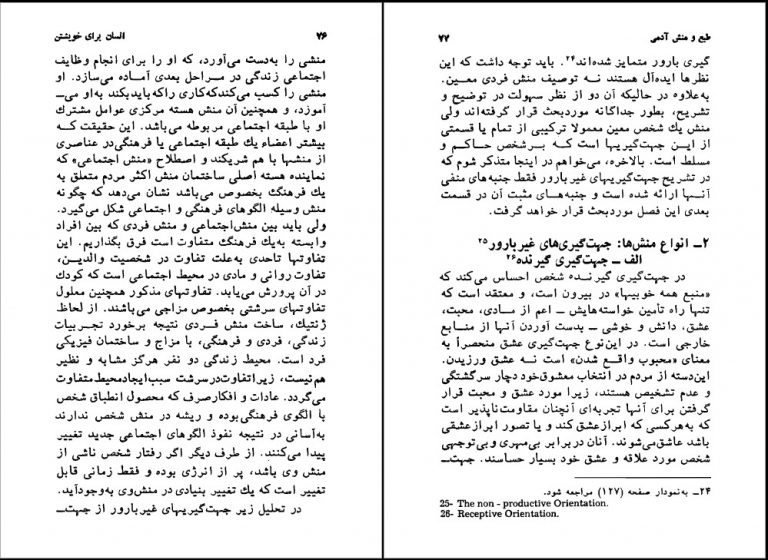 انسان برای خویشتن
۷۶
منشی را به‌دست می‌آورد، که او را برای انجام وظایف
اجتماعی زندگی در مراحل بعدی آماده می‌سازد. او
منشی را کسب می‌کند که کاری را که باید بکند به او می‌ـ
آموزد، و همچنین آن منش هسته مرکزی عوامل مشترک
او با طبقه اجتماعی مربوطه می‌باشد. این حقیقت که
بیشتر اعضاء یک طبقه اجتماعی یا فرهنگی در عناصری
از منشها با هم شریکند و اصطلاح «منش اجتماعی» که
نماینده هسته اصلی ساختمان منش اکثر مردم متعلق به
یک فرهنگ بخصوص می‌باشد نشان می‌دهد که چگونه
منش وسیله الگوهای فرهنگی و اجتماعی شکل می‌گیرد.
ولی باید بین منش اجتماعی و منش فردی که بین افراد
وابسته به یک فرهنگ متفاوت است فرق بگذاریم. این
تفاوتها تاحدی به‌علت تفاوت در شخصیت والدین،
تفاوت روانی و مادی در محیط اجتماعی است که کودک
در آن پرورش می‌یابد. تفاوتهای مذکور همچنین معلول
تفاوتهای سرشتی بخصوص مزاجی می‌باشند. از لحاظ
ژنتیک، ساخت منش فردی نتیجه برخورد تجربیات
زندگی، فردی و فرهنگی، با مزاج و ساختمان فیزیکی
فرد است. محیط زندگی دو نفر هرگز مشابه و نظیر
هم نیست، زیرا تفاوت در سرشت سبب ایجاد محیط متفاوت
می‌گردد. عادات و افکار صرف که محصول انطباق شخص
با الگوی فرهنگی بوده و ریشه در منش شخص ندارند
به‌آسانی در نتیجه نفوذ الگوهای اجتماعی جدید تغییر
پیدا می‌کنند. از طرف دیگر اگر رفتار شخص ناشی از
منش وی باشد، پر از انرژی بوده و فقط زمانی قابل
تغییر است که یک تغییر بنیادی در منش وی به‌وجود آید.
در تحلیل زیر جهت‌گیریهای غیربارور از جهت‌ـ
طبع و منش آدمی
۷۷
گیری بارور متمایز شده‌اند۲۴. باید توجه داشت که این
نظرها ایده‌آل هستند نه توصیف منش فردی معین.
به‌علاوه در حالیکه آن دو از نظر سهولت در توضیح و
تشریح، بطور جداگانه موردبحث قرار گرفته‌اند ولی
منش یک شخص معین معمولا ترکیبی از تمام یا قسمتی
از این جهت‌گیریها است که برشخص حاکم و
مسلط است. بالاخره، می‌خواهم در اینجا متذکر شوم که
در تشریح جهت‌گیریهای غیر بارور فقط جنبه‌های منفی
آنها ارائه شده است و جنبه‌های مثبت آن در قسمت
بعدی این فصل موردبحث قرار خواهد گرفت.
۲ـ انواع منش‌ها: جهت‌گیری‌های غیر بارور۲۵
الف ـ جهت‌گیری گیرنده۲۶
در جهت‌گیری گیرنده شخص احساس می‌کند که
«منبع همه خوبیها» در بیرون است، و معتقد است که
تنها راه تأمین خواسته‌هایش ـ اعم از مادی، محبت،
عشق، دانش و خوشی ـ بدست آوردن آنها از منابع
خارجی است. در این‌نوع جهت‌گیری عشق منحصرأ به
معنای «محبوب واقع شدن» است نه عشق ورزیدن.
این‌دسته از مردم در انتخاب معشوق خود دچار سرگشتگی
و عدم تشخیص هستند، زیرا مورد عشق و محبت قرار
گرفتن برای آنها تجربه‌ای آنچنان مقاومت‌ناپذیر است
که به‌هرکسی که ابراز عشق کند و یا تصور ابراز عشقی
باشد عاشق می‌شوند. آنان در برابر بی‌مهری و بی‌توجهی
شخص مورد علاقه و عشق خود بسیار حساسند. جهت‌ـ
۲۴ـ به‌نمودار صفحه (۱۲۷) مراجعه شود.
25- The non - productive Orientation.
26- Receptive Orientation.